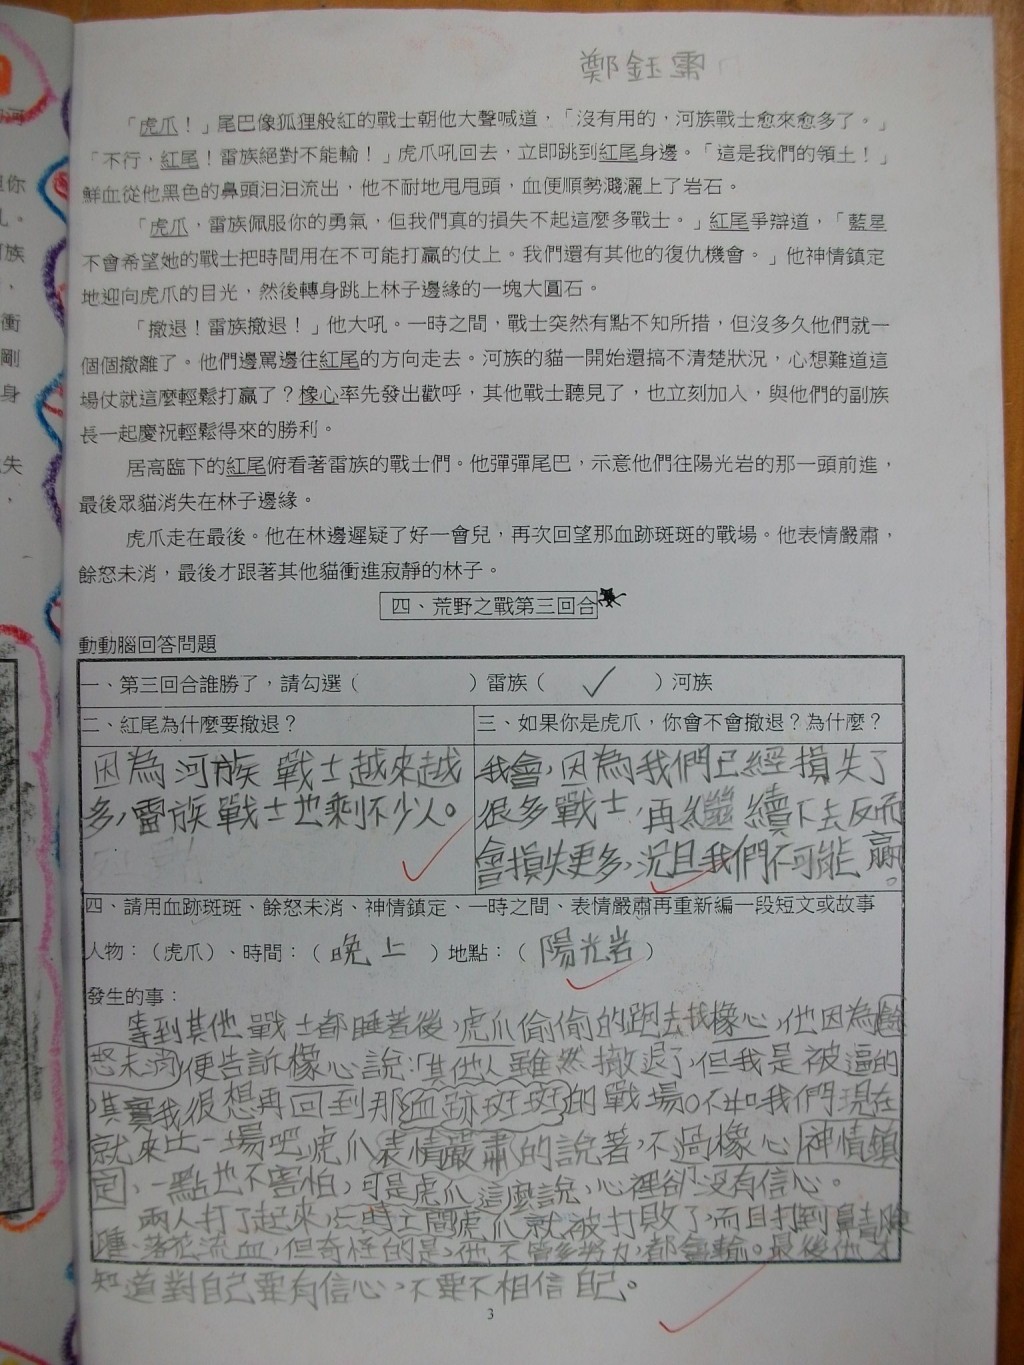 鄭鈺霈
「虎爪！」尾巴像狐狸般紅的戰士朝他大聲喊道，「沒有用的，河族戰士愈來愈多了。」
「不行，紅尾！雷族絕對不能輸！」虎爪吼回去，立即跳到紅尾身邊。「這是我們的領土！」
鮮血從他黑色的鼻頭汩汩流出，他不耐地甩甩頭，血便順勢濺灑上了岩石。
「虎爪，雷族佩服你的勇氣，但我們真的損失不起這麼多戰士。」紅尾爭辯道，「藍星
不會希望她的戰士把時間用在不可能打贏的仗上。我們還有其他的復仇機會。」他神情鎮定
地迎向虎爪的目光，然後轉身跳上林子邊緣的一塊大圓石。
「撤退！雷族撤退！」他大吼。一時之間，戰士突然有點不知所措，但沒多久他們就一
個個撤離了。他們邊罵邊往紅尾的方向走去。河族的貓一開始還搞不清楚狀況，心想難道這
場仗就這麼輕鬆打贏了？橡心率先發出歡呼，其他戰士聽見了，也立刻加入，與他們的副族
長一起慶祝輕鬆得來的勝利。
居高臨下的紅尾俯看著雷族的戰士們。他彈彈尾巴，示意他們往陽光岩的那一頭前進，
最後眾貓消失在林子邊緣。
虎爪走在最後。他在林邊遲疑了好一會兒，再次回望那血跡斑斑的戰場。他表情嚴肅，
餘怒未消，最後才跟著其他貓衝進寂靜的林子。
四、荒野之戰第三回合
動動腦回答問題
一、第三回合誰勝了，請勾選（ ）雷族（ ✓ ）河族
二、紅尾為什麼要撤退？
因為河族戰士越來越
多，雷族戰士也剩不少人。
三、如果你是虎爪，你會不會撤退？為什麼？
我會，因為我們已經損失了
很多戰士，再繼續下去反而
會損失更多，況且我們不可能贏。
四、請用血跡斑斑、餘怒未消、神情鎮定、一時之間、表情嚴肅再重新編一段短文或故事
人物：（虎爪）、時間：（ 晚上 ）地點：（ 陽光岩 ）
發生的事：
等到其他戰士都睡著後，虎爪偷偷的跑去找橡心，他因為餘
怒未消，便告訴橡心說：「其他人雖然撤退了，但我是被逼的
，其實我很想再回到那血跡斑斑的戰場。不如我們現在
就來比一場吧，虎爪表情嚴肅的說著，不過橡心神情鎮
定，一點也不害怕，可是虎爪這麼說，心裡卻沒有信心。
兩人打了起來，一時之間虎爪就被打敗了，而且打到鼻青臉
腫、落花流血，但奇怪的是，他不管多努力，都會輸。最後他才
知道對自己要有信心，不要不相信自己。
3